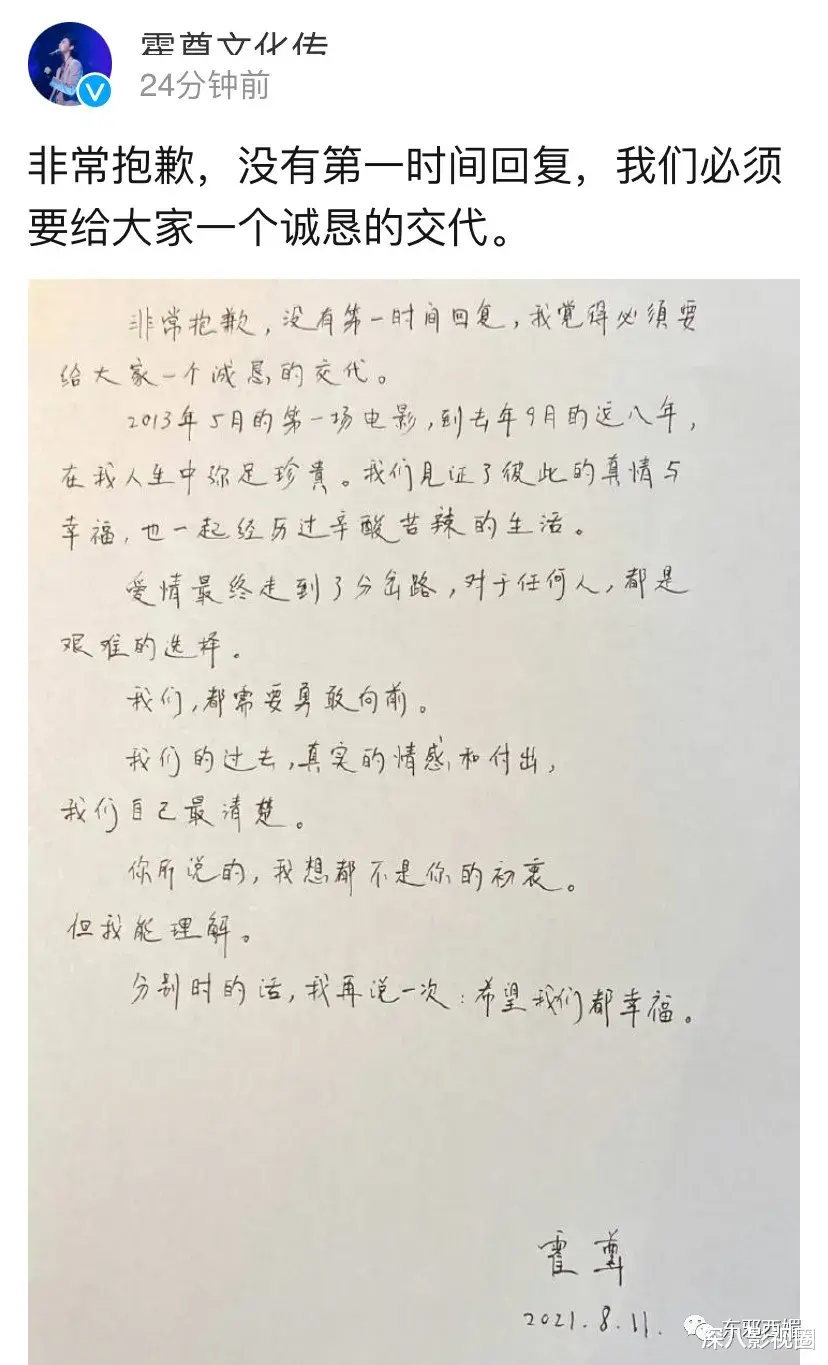 霍尊文化传
24分钟前
非常抱歉，没有第一时间回复，我们必须
要给大家一个诚恳的交代。
非常抱歉，没有第一时间回复，我觉得必须要
给大家一个诚恳的交代。
2013年5月的第一场电影，到去年9月的这八年，
在我人生中弥足珍贵。我们见证了彼此的真情与
幸福，也一起经历过辛酸苦辣的生活。
爱情最终走到了分岔路，对于任何人，都是
艰难的选择。
我们，都需要勇敢向前。
我们的过去，真实的情感和付出，
我们自己最清楚。
你所说的，我想都不是你的初衷。
但我能理解。
分别时的话，我再说一次：希望我们都幸福。
霍尊
2021.8.11.
东邪西媚
深八影视圈